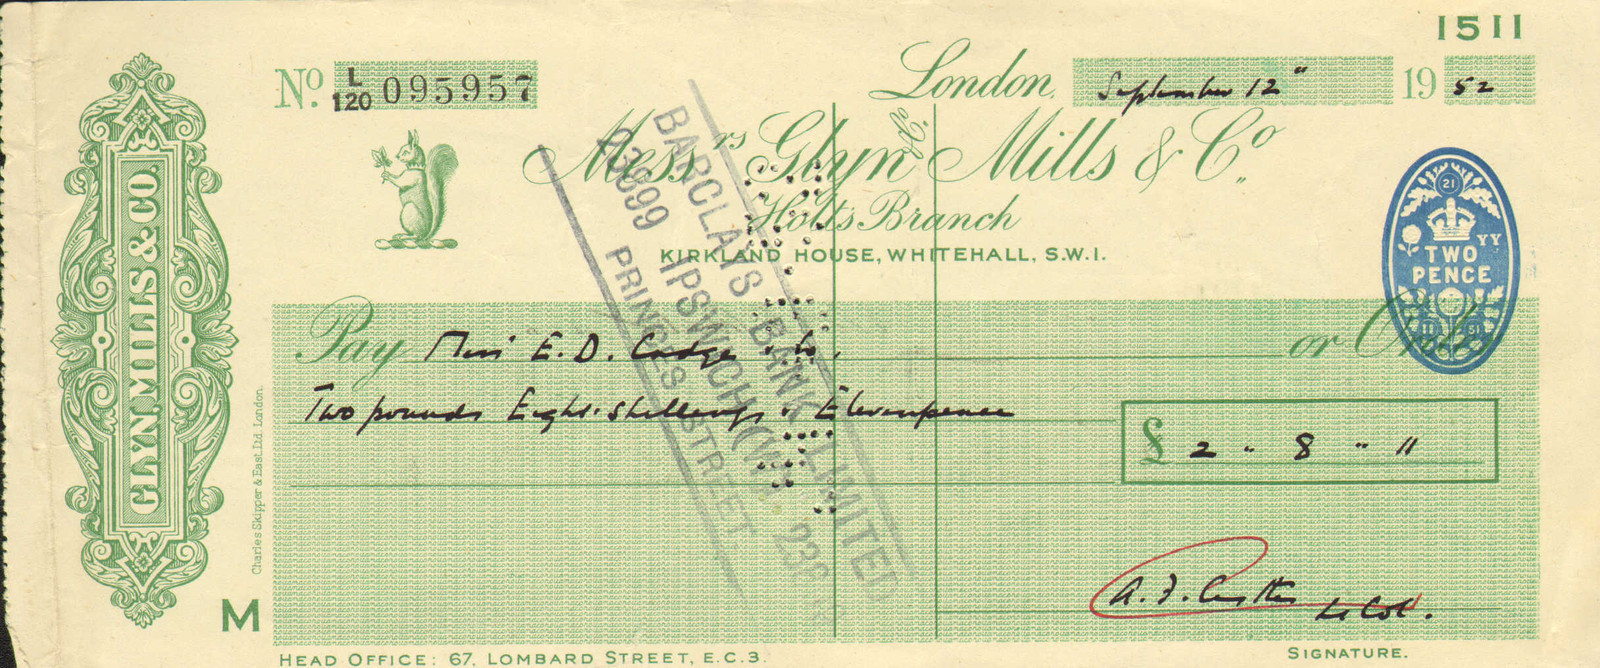 1511
No. L/120 095957
London, September 12" 1952
Messrs Glyn Mills & Co.,
& Co
Holts Branch
KIRKLAND HOUSE, WHITEHALL, S.W.1.
GLYN, MILLS & CO.
21
YY
TWO
PENCE
11 51
Pay Miss E. D. Cadge or Order
Two pounds Eight shillings & Elevenpence
£ 2 " 8 " 11
BARCLAYS BANK LIMITED
IPSWICH
PRINCES STREET
A. F.
Lt Col.
Charles Skipper & East, Ltd. London.
M
SIGNATURE.
HEAD OFFICE: 67, LOMBARD STREET, E.C.3.